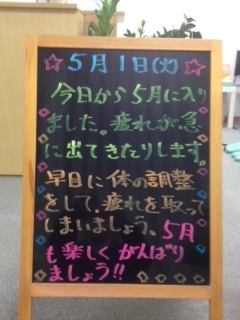 ☆5月1日(火)☆
今日から5月に入り
ました。疲れが急
に出てきたりします。
早目に体の調整
をして、疲れを取って
しまいましょう。5月
も楽しくがんばり
ましょう!!